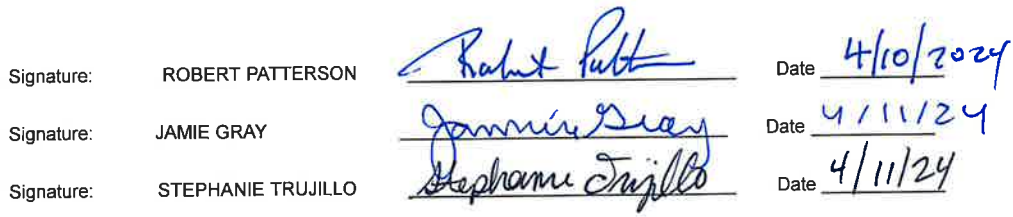 Signature: ROBERT PATTERSON Robert Patt Date 4/10/2024
Signature: JAMIE GRAY Jammie Gray Date 4/11/24
Signature: STEPHANIE TRUJILLO Stephanie Trujillo Date 4/11/24